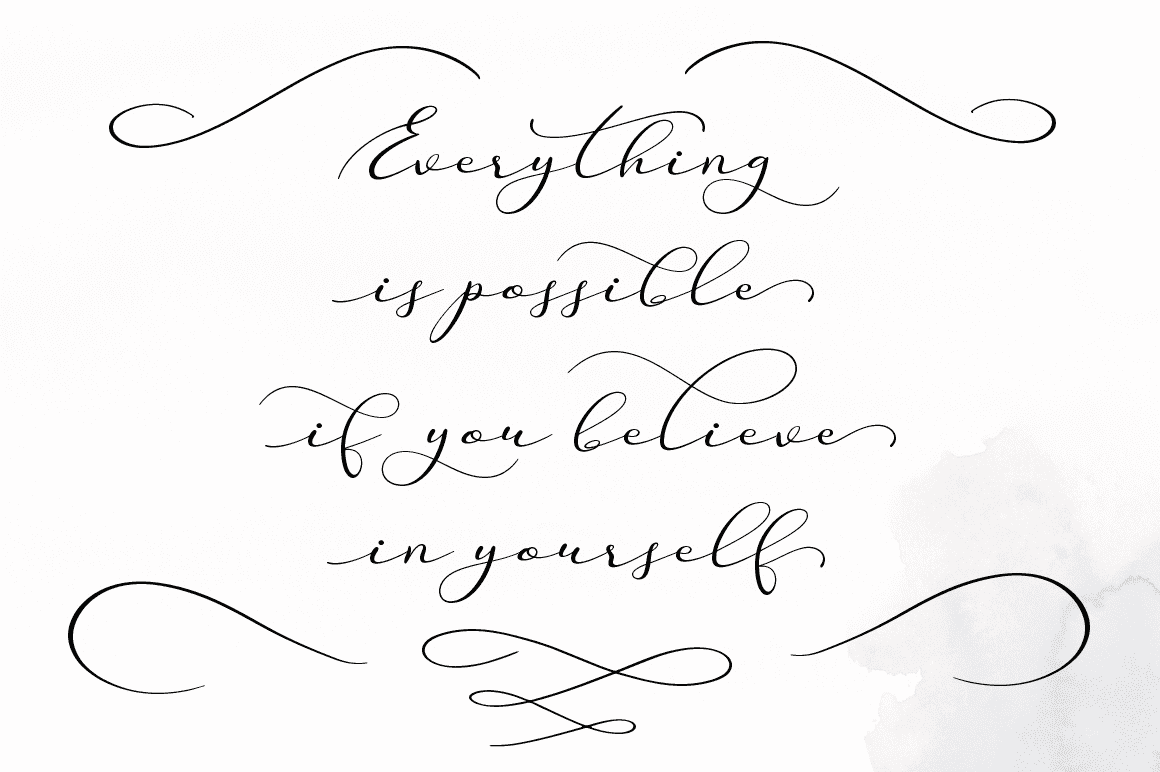 Everything
is possible
if you believe
in yourself